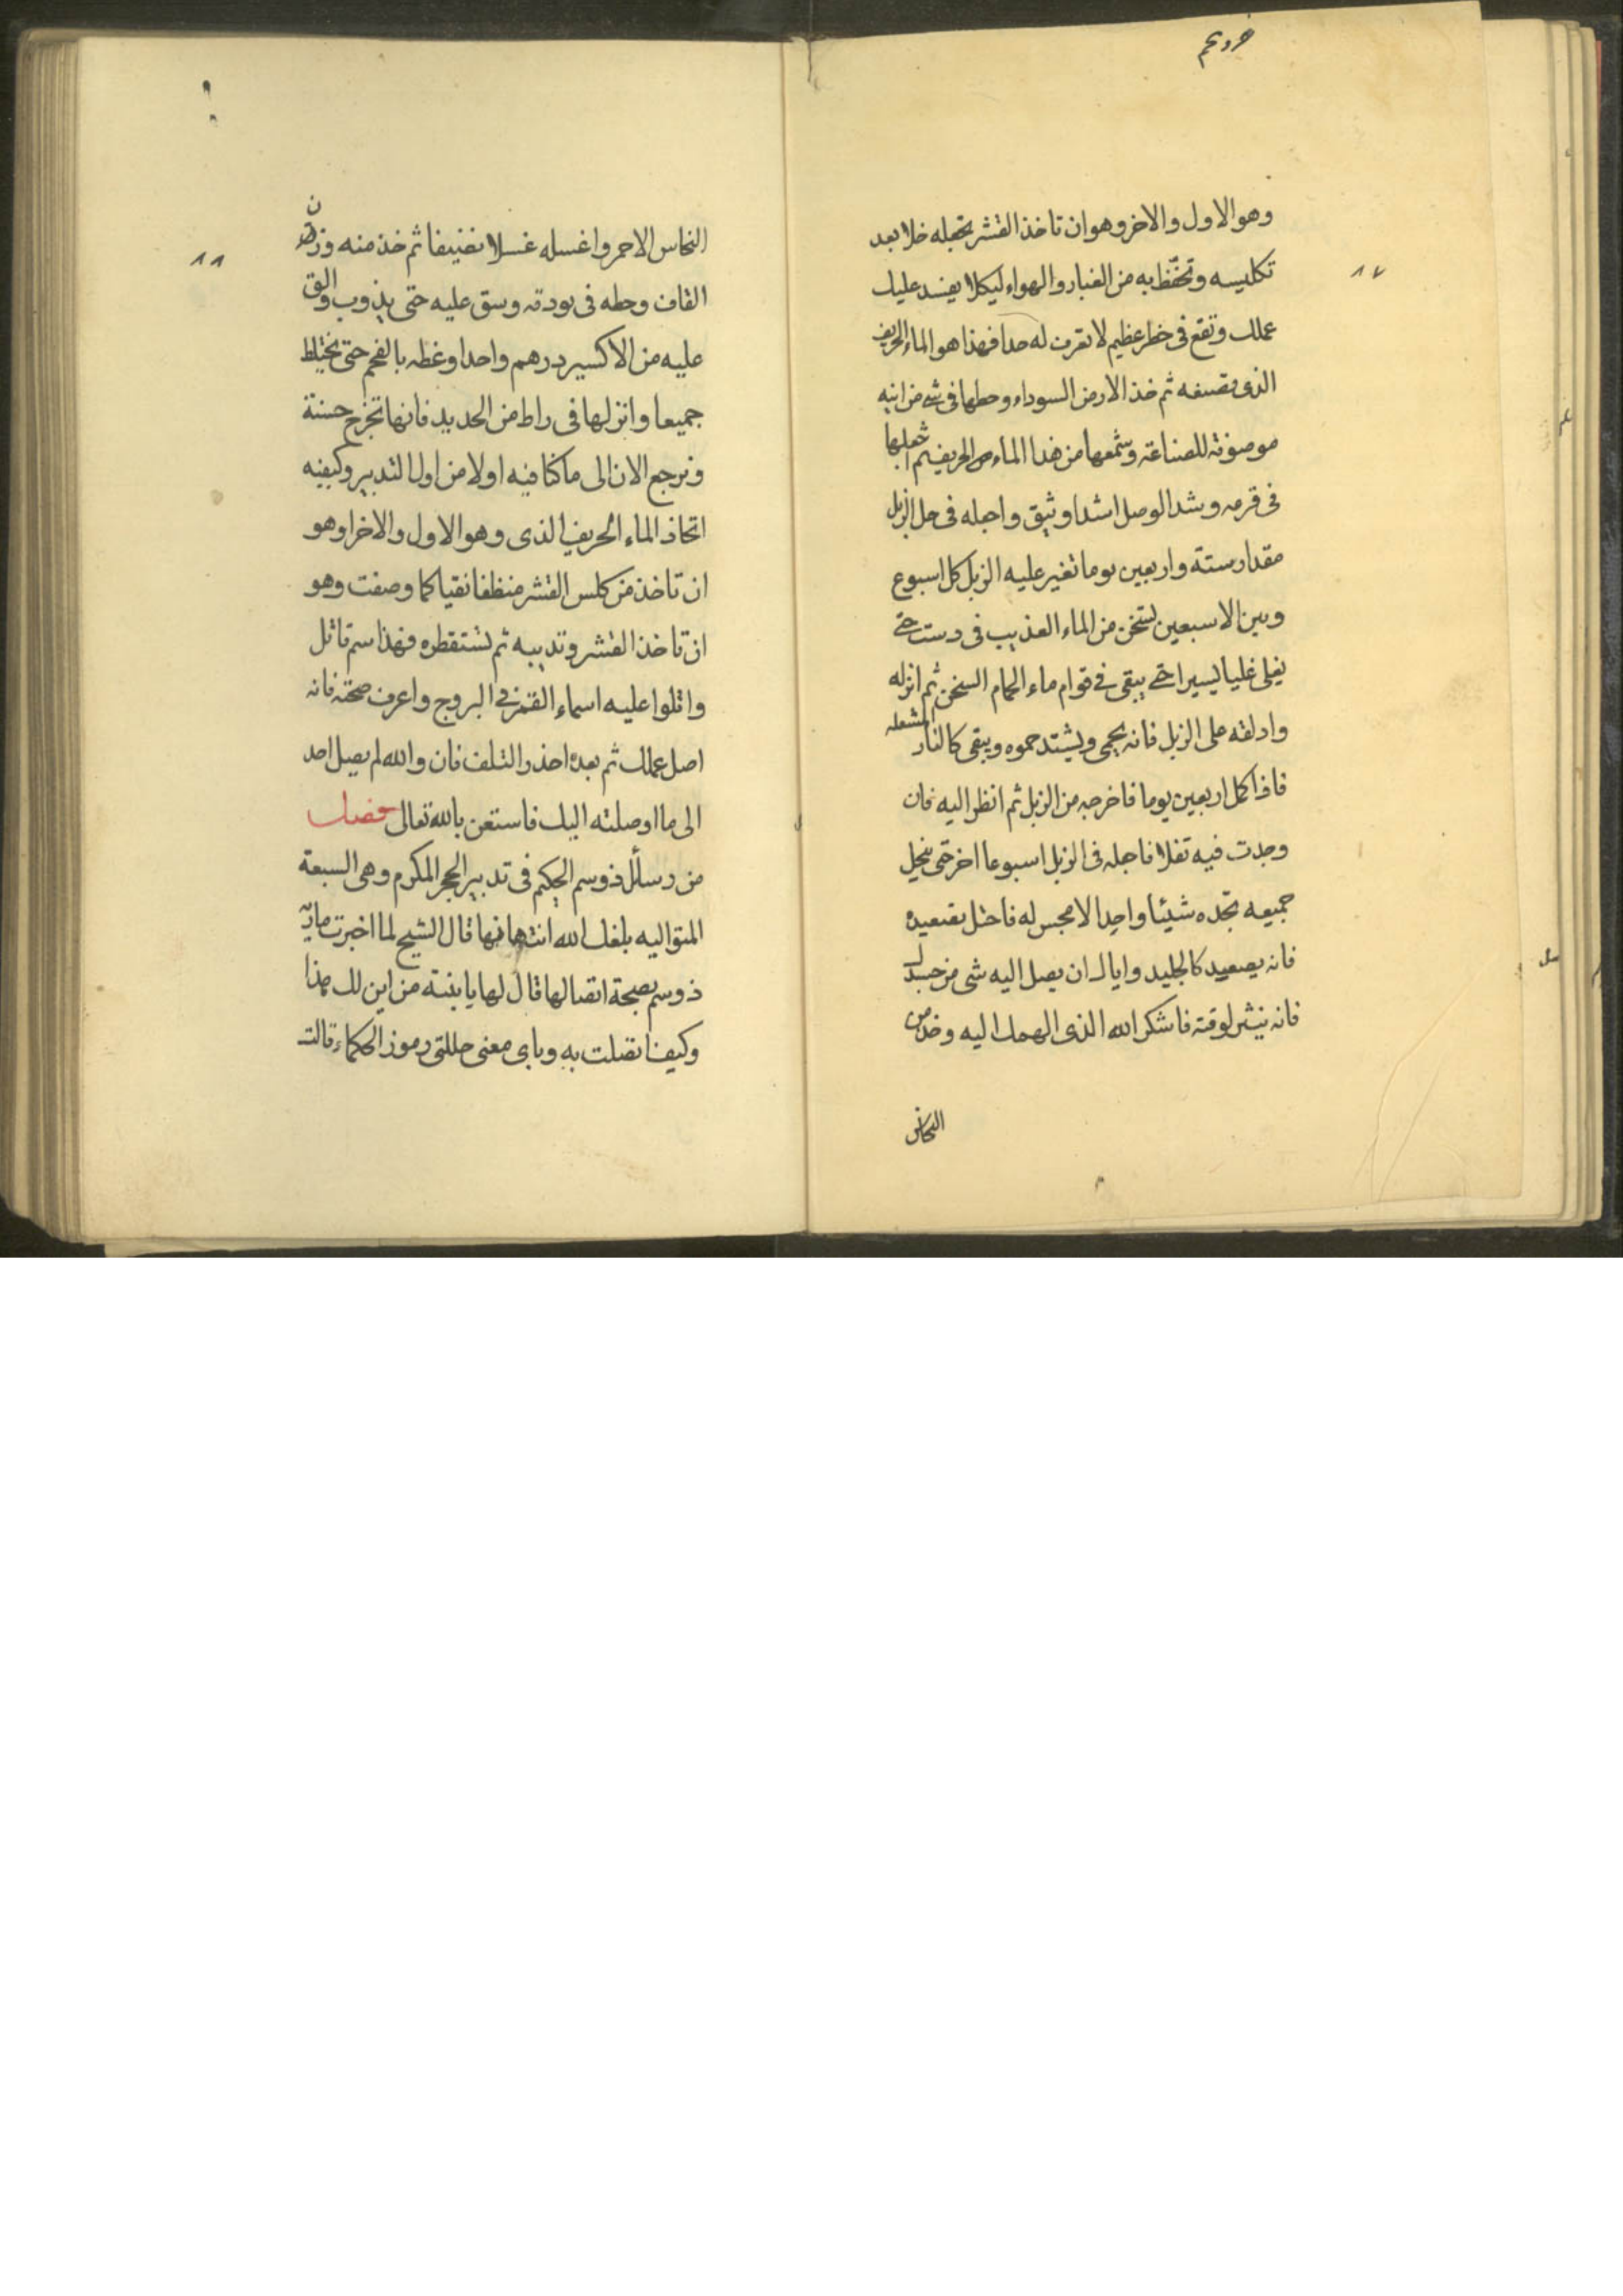 ٨٧
وهو الاول والاخر وهو ان تاخذ القشر تجعله خلا بعد
تكليسه وتحفّظ به من الغبار والهواء ليكلا يفسد عليك
عملك وتقع فى خطر عظيم لا تعرف له حدا فهذا هو الماء الحريف
الذى نصفه ثم خذ الارض السوداء وحطها فى شى من انيه
موصوفة للصناعة وشمعها من هذا الماء الحريف ثم اجعلها
فى قرعه وشد الوصل شدا وثيق واجعله فى حل الزبل
مقدار ستة واربعين يوما تغير عليه الزبل كل اسبوع
وبين الاسبعين تسخن من الماء العذيب فى دست حتى
يغلى غليا يسيرا حتى يبقى فى قوام ماء الحمام السخن ثم انزله
وادلقه على الزبل فانه يحمى ويشتد حموه ويبقى كالنار المشعله
فاذا كمل اربعين يوما فاخرجه من الزبل ثم انظر اليه فان
وجدت فيه تفلا فاجعله فى الزبل اسبوعا اخر حتى ينحل
جميعه تجده شيئا واحدا لا مجس له فاحتل بصعيده
فانه يصعيد كالجليد واياك ان يصل اليه شى من جسدك
فانه ينثر لوقته فاشكر الله الذى الهمك اليه وخذ من
النحاس
٨٨
النحاس الاحمر واغسله غسلا نضيفا ثم خذ منه وزن
القاف وحطه فى بودقه وسق عليه حتى يذوب والق
عليه من الاكسير درهم واحد وغطه بالفحم حتى يختلط
جميعا وانزلها فى راط من الحديد فانها تخرج حسنة
ونرجع الان الى ما كنا فيه اولا من اول التدبير وكيفيه
اتخاذ الماء الحريف الذى وهو الاول والاخر اوهو
ان تاخذ من كلس القشر منظفا نقيا كما وصفت وهو
ان تاخذ القشر وتديبه ثم تستقطره فهذا سم قاتل
واتلوا عليه اسماء القمر فى البروج واعرف صحته فانه
اصل عملك ثم بعده احذر التلف فان والله لم يصل احد
الى ما اوصلته اليك فاستعن بالله تعالى فصل
من رسائل ذوسم الحكيم فى تدبير الحجر المكرم وهى السبعة
المتواليه بلغك الله انتهائها قال الشيخ لما اخبرت ماريه
ذوسم بصحة اتصالها قال لها يا ابنته من اين لك هذا
وكيف اتصلت به وباى معنى حللتى رموز الحكماء قالت